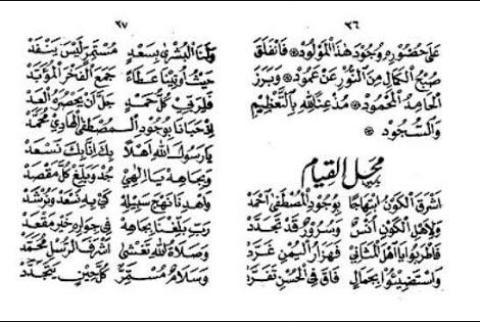 ٣٦
عَلَى حُضُورِهِ وُجُودُ هٰذَا الْمَوْلُودِ * فَانْفَلَقَ
صُبْحُ الْكَمَالِ مِنَ النُّورِ عَنْ عَمُودٍ * وَبَرَزَ
الْحَامِدُ الْمَحْمُودُ * مُذْعِنًا لِلّٰهِ بِالتَّعْظِيْمِ
وَالسُّجُودِ *
محل القيام
اَشْرَقَ الْكَوْنُ ابْتِهَاجًا بِوُجُودِ الْمُصْطَفَى احْمَدْ
وَلِاَهْلِ الْكَوْنِ اُنْسٌ وَسُرُورٌ قَدْ تَجَدَّدْ
فَاطْرَبُوا يَا اَهْلَ الْمَثَانِي فَهَزَارُ الْيُمْنِ غَرَّدْ
وَاسْتَضِيْئُوا بِجَمَالٍ فَاقَ فِي الْحُسْنِ تَفَرَّدْ
٣٧
وَلَنَا الْبُشْرَى بِسَعْدٍ مُسْتَمِرٍّ لَيْسَ يَنْفَدْ
حَيْثُ اُوْتِيْنَا عَطَاءً جَمَعَ الْفَخْرَ الْمُؤَبَّدْ
فَلِرَبِّي كُلُّ حَمْدٍ جَلَّ اَنْ يَحْصُرَهُ الْعَدْ
اِذْ حَبَانَا بِوُجُودِ الْمُصْطَفَى الْهَادِي مُحَمَّدْ
يَا رَسُولَ اللهِ اَهْلًا بِكَ اِنَّا بِكَ نُسْعَدْ
وَبِجَاهِهْ يَا اِلٰهِي جُدْ وَبَلِّغْ كُلَّ مَقْصَدْ
وَاهْدِنَا نَهْجَ سَبِيْلِهْ كَيْ بِهِ نُسْعَدْ وَنُرْشَدْ
رَبِّ بَلِّغْنَا بِجَاهِهْ فِي جِوَارِهِ خَيْرَ مَقْعَدْ
وَصَلَاةُ اللهِ تَغْشَى اَشْرَفَ الرُّسْلِ مُحَمَّدْ
وَسَلَامٌ مُسْتَمِرٌّ كُلَّ حِيْنٍ يَتَجَدَّدْ